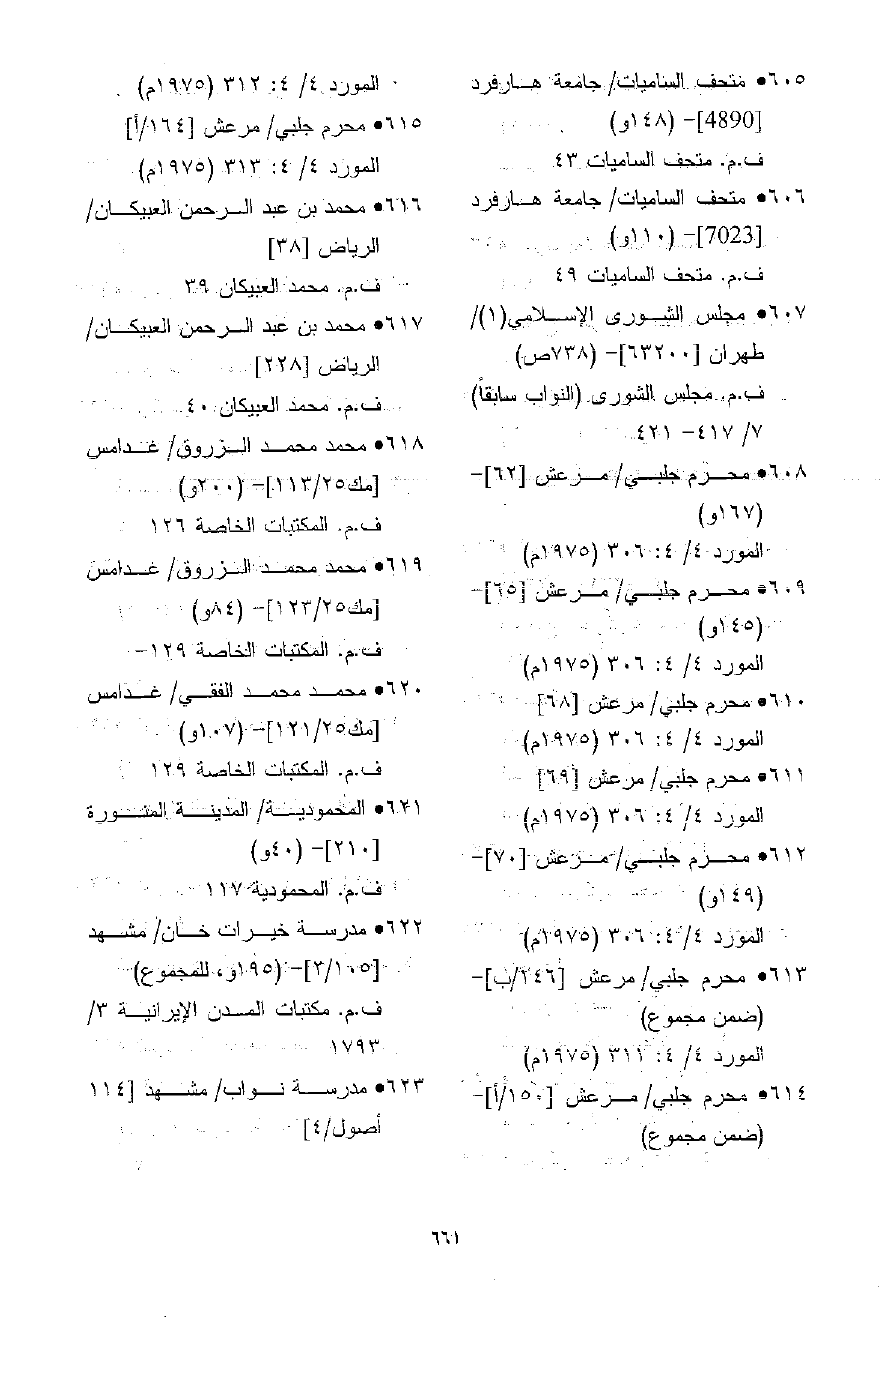 ٦٠٥• متحف الساميات/ جامعة هـارفرد
[4890]- (١٤٨و)
ف.م. متحف الساميات ٤٣
٦٠٦• متحف الساميات/ جامعة هـارفرد
[7023]- (١١٠و)
ف.م. متحف الساميات ٤٩
٦٠٧• مجلس الشورى الإسلامي(١)/
طهران [٦٣٢٠٠]- (٧٣٨ص)
ف.م. مجلس الشورى (النواب سابقاً)
٧/ ٤١٧- ٤٢١
٦٠٨• محرم جلبي/ مرعش [٦٢]-
(١٦٧و)
المورد ٤/ ٤: ٣٠٦ (١٩٧٥م)
٦٠٩• محرم جلبي/ مرعش [٦٥]-
(١٤٥و)
المورد ٤/ ٤: ٣٠٦ (١٩٧٥م)
٦١٠• محرم جلبي/ مرعش [٦٨]
المورد ٤/ ٤: ٣٠٦ (١٩٧٥م)
٦١١• محرم جلبي/ مرعش [٦٩]
المورد ٤/ ٤: ٣٠٦ (١٩٧٥م)
٦١٢• محرم جلبي/ مرعش [٧٠]-
(١٤٩و)
المورد ٤/ ٤: ٣٠٦ (١٩٧٥م)
٦١٣• محرم جلبي/ مرعش [٢٤٦/ب]-
(ضمن مجموع)
المورد ٤/ ٤: ٣١١ (١٩٧٥م)
٦١٤• محرم جلبي/ مرعش [١٥٠/أ]-
(ضمن مجموع)
المورد ٤/ ٤: ٣١٢ (١٩٧٥م)
٦١٥• محرم جلبي/ مرعش [١٦٤/أ]
المورد ٤/ ٤: ٣١٣ (١٩٧٥م)
٦١٦• محمد بن عبد الرحمن العبيكان/
الرياض [٣٨]
ف.م. محمد العبيكان ٣٩
٦١٧• محمد بن عبد الرحمن العبيكان/
الرياض [٢٢٨]
ف.م. محمد العبيكان ٤٠
٦١٨• محمد محمد الزروق/ غدامس
[مك١١٣/٢٥]- (٢٠٠و)
ف.م. المكتبات الخاصة ١٢٦
٦١٩• محمد محمد الزروق/ غدامس
[مك١٢٣/٢٥]- (٨٤و)
ف.م. المكتبات الخاصة ١٢٩-
٦٢٠• محمد محمد الفقي/ غدامس
[مك١٢١/٢٥]- (١٠٧و)
ف.م. المكتبات الخاصة ١٢٩
٦٢١• المحمودية/ المدينة المنورة
[٢١٠]- (٤٠و)
ف.م. المحمودية ١١٧
٦٢٢• مدرسة خيرات خان/ مشهد
[٢/١٠٥]- (١٩٥و، للمجموع)
ف.م. مكتبات المدن الإيرانية ٣/
١٧٩٣
٦٢٣• مدرسة نواب/ مشهد [١١٤
أصول/٤]
٦٦١